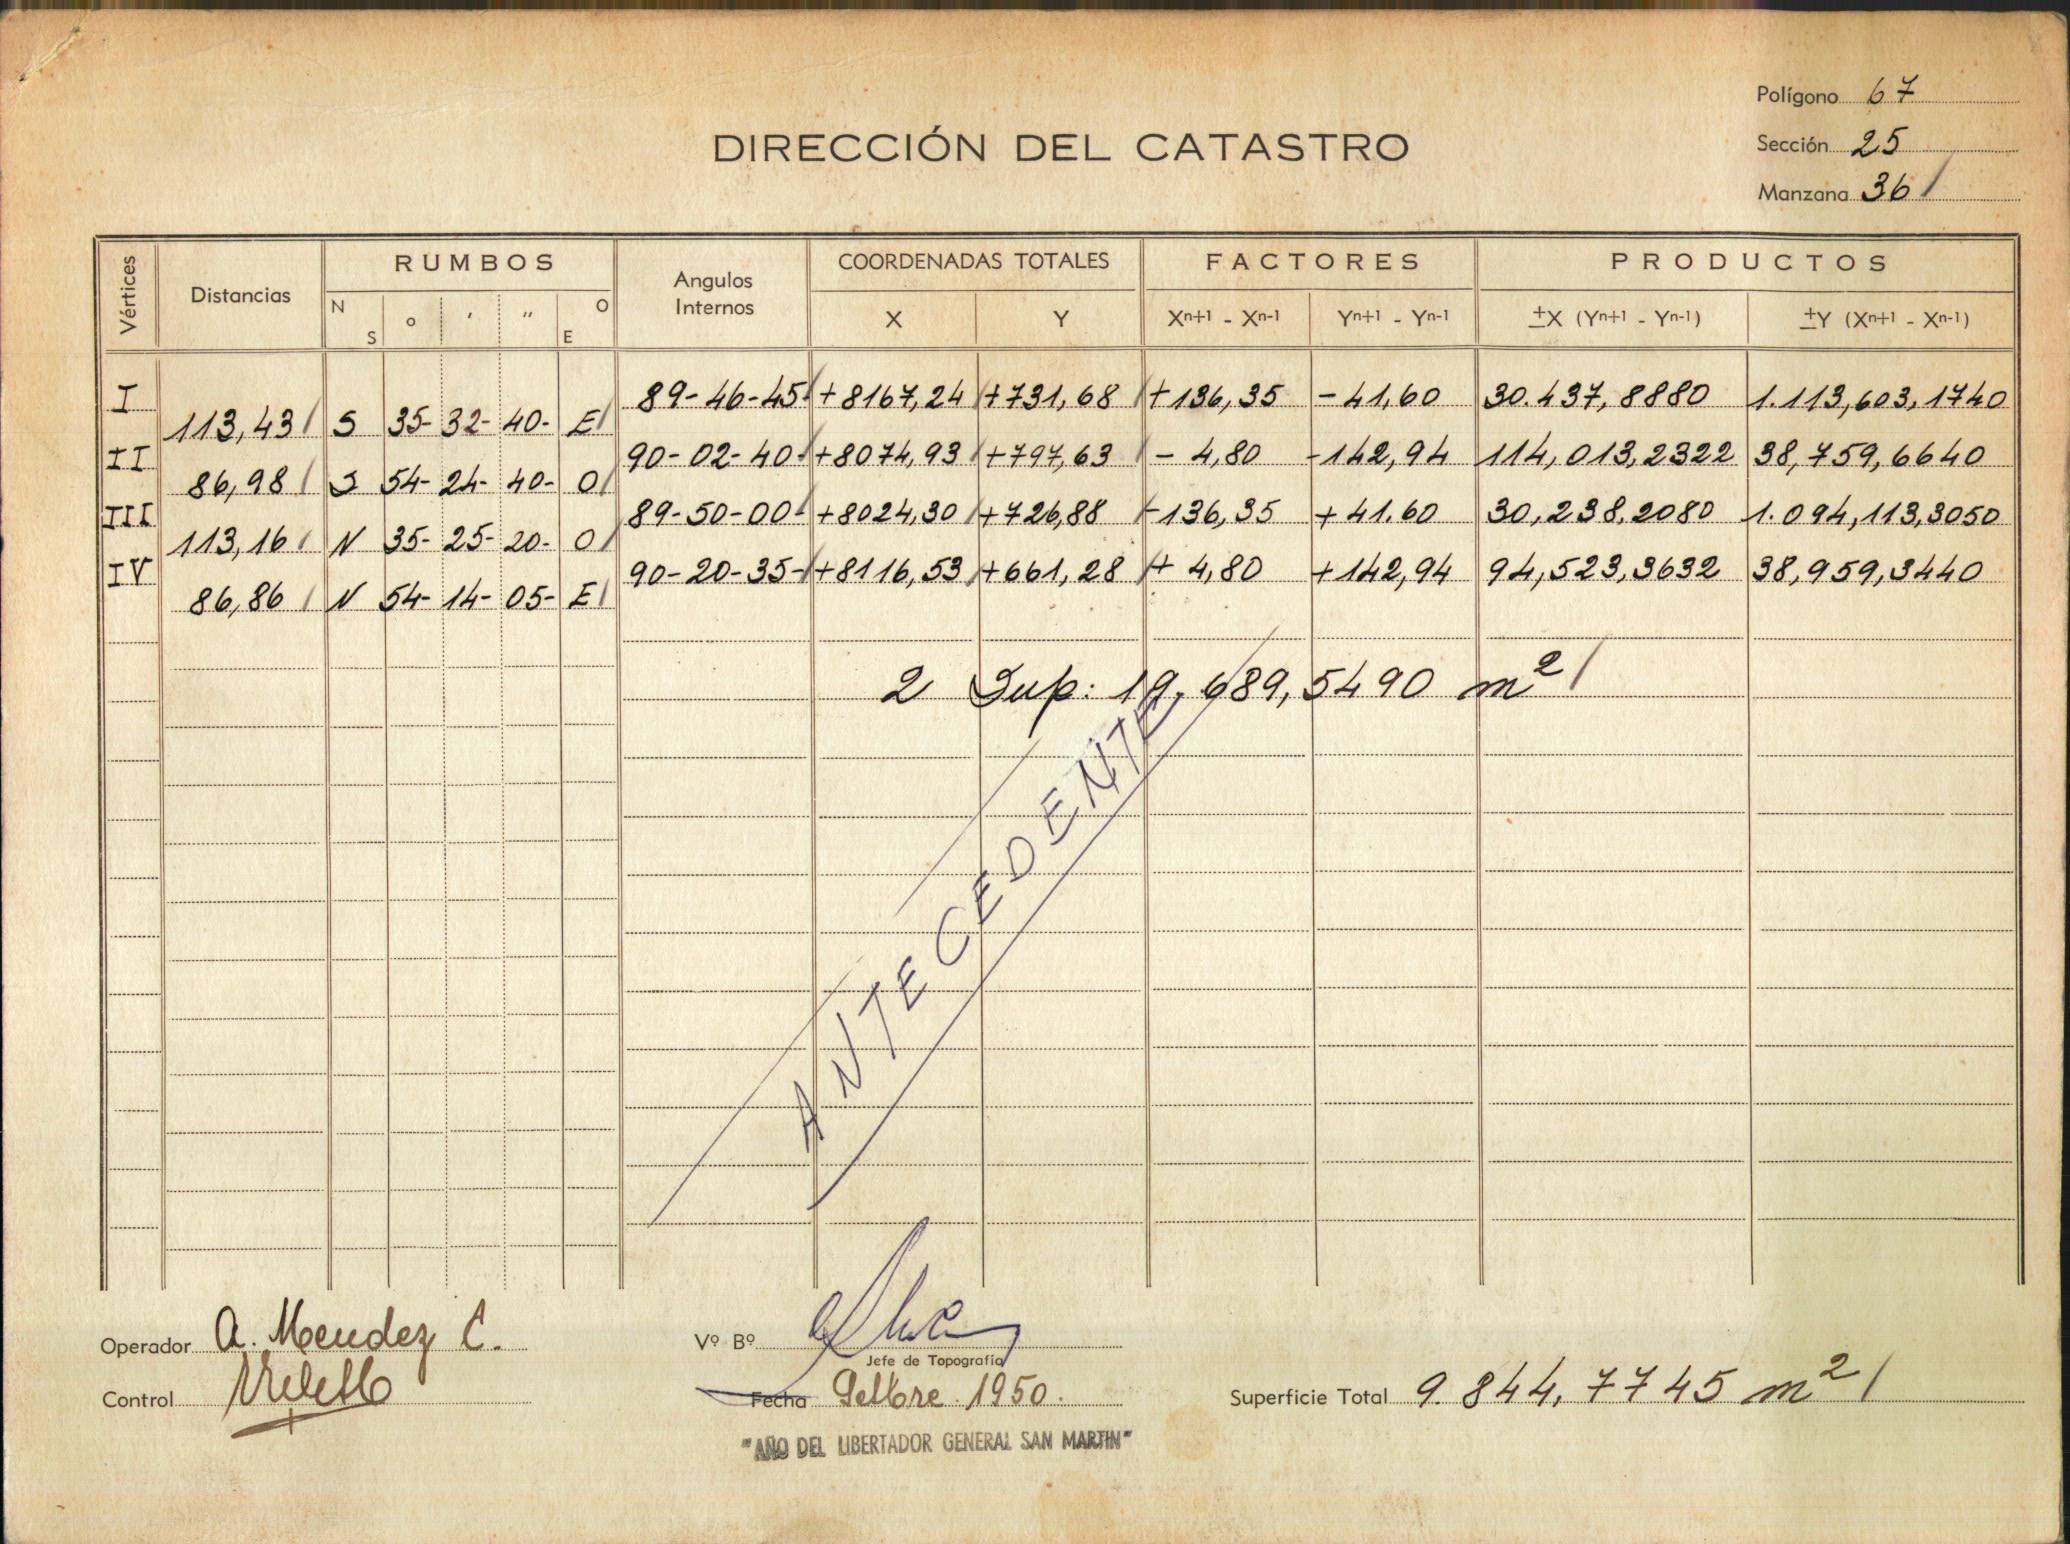 Polígono 67
DIRECCIÓN DEL CATASTRO
Sección 25
Manzana 36
Vértices Distancias RUMBOS Angulos Internos COORDENADAS TOTALES FACTORES PRODUCTOS
N S ° ' " O E X Y Xn+1 - Xn-1 Yn+1 - Yn-1 ±X (Yn+1 - Yn-1) ±Y (Xn+1 - Xn-1)
I 89-46-45 +8167,24 +731,68 +136,35 -41,60 30.437,8880 1.113,603,1740
113,43 S 35- 32- 40- E
II 90-02-40 +8074,93 +797,63 - 4,80 -142,94 114,013,2322 38,759,6640
86,98 S 54- 24- 40- O
III 89-50-00 +8024,30 +726,88 -136,35 +41.60 30,238,2080 1.094,113,3050
113,16 N 35- 25- 20- O
IV 90-20-35- +8116,53 +661,28 + 4,80 +142,94 94,523,3632 38,959,3440
86,86 N 54- 14- 05- E
2 Sup: 19.689,5490 m²
ANTECEDENTE
Operador A. Mendez C.
Vº Bº
Jefe de Topografía
Control
Fecha Setbre. 1950.
Superficie Total 9.844,7745 m²
"AÑO DEL LIBERTADOR GENERAL SAN MARTIN"